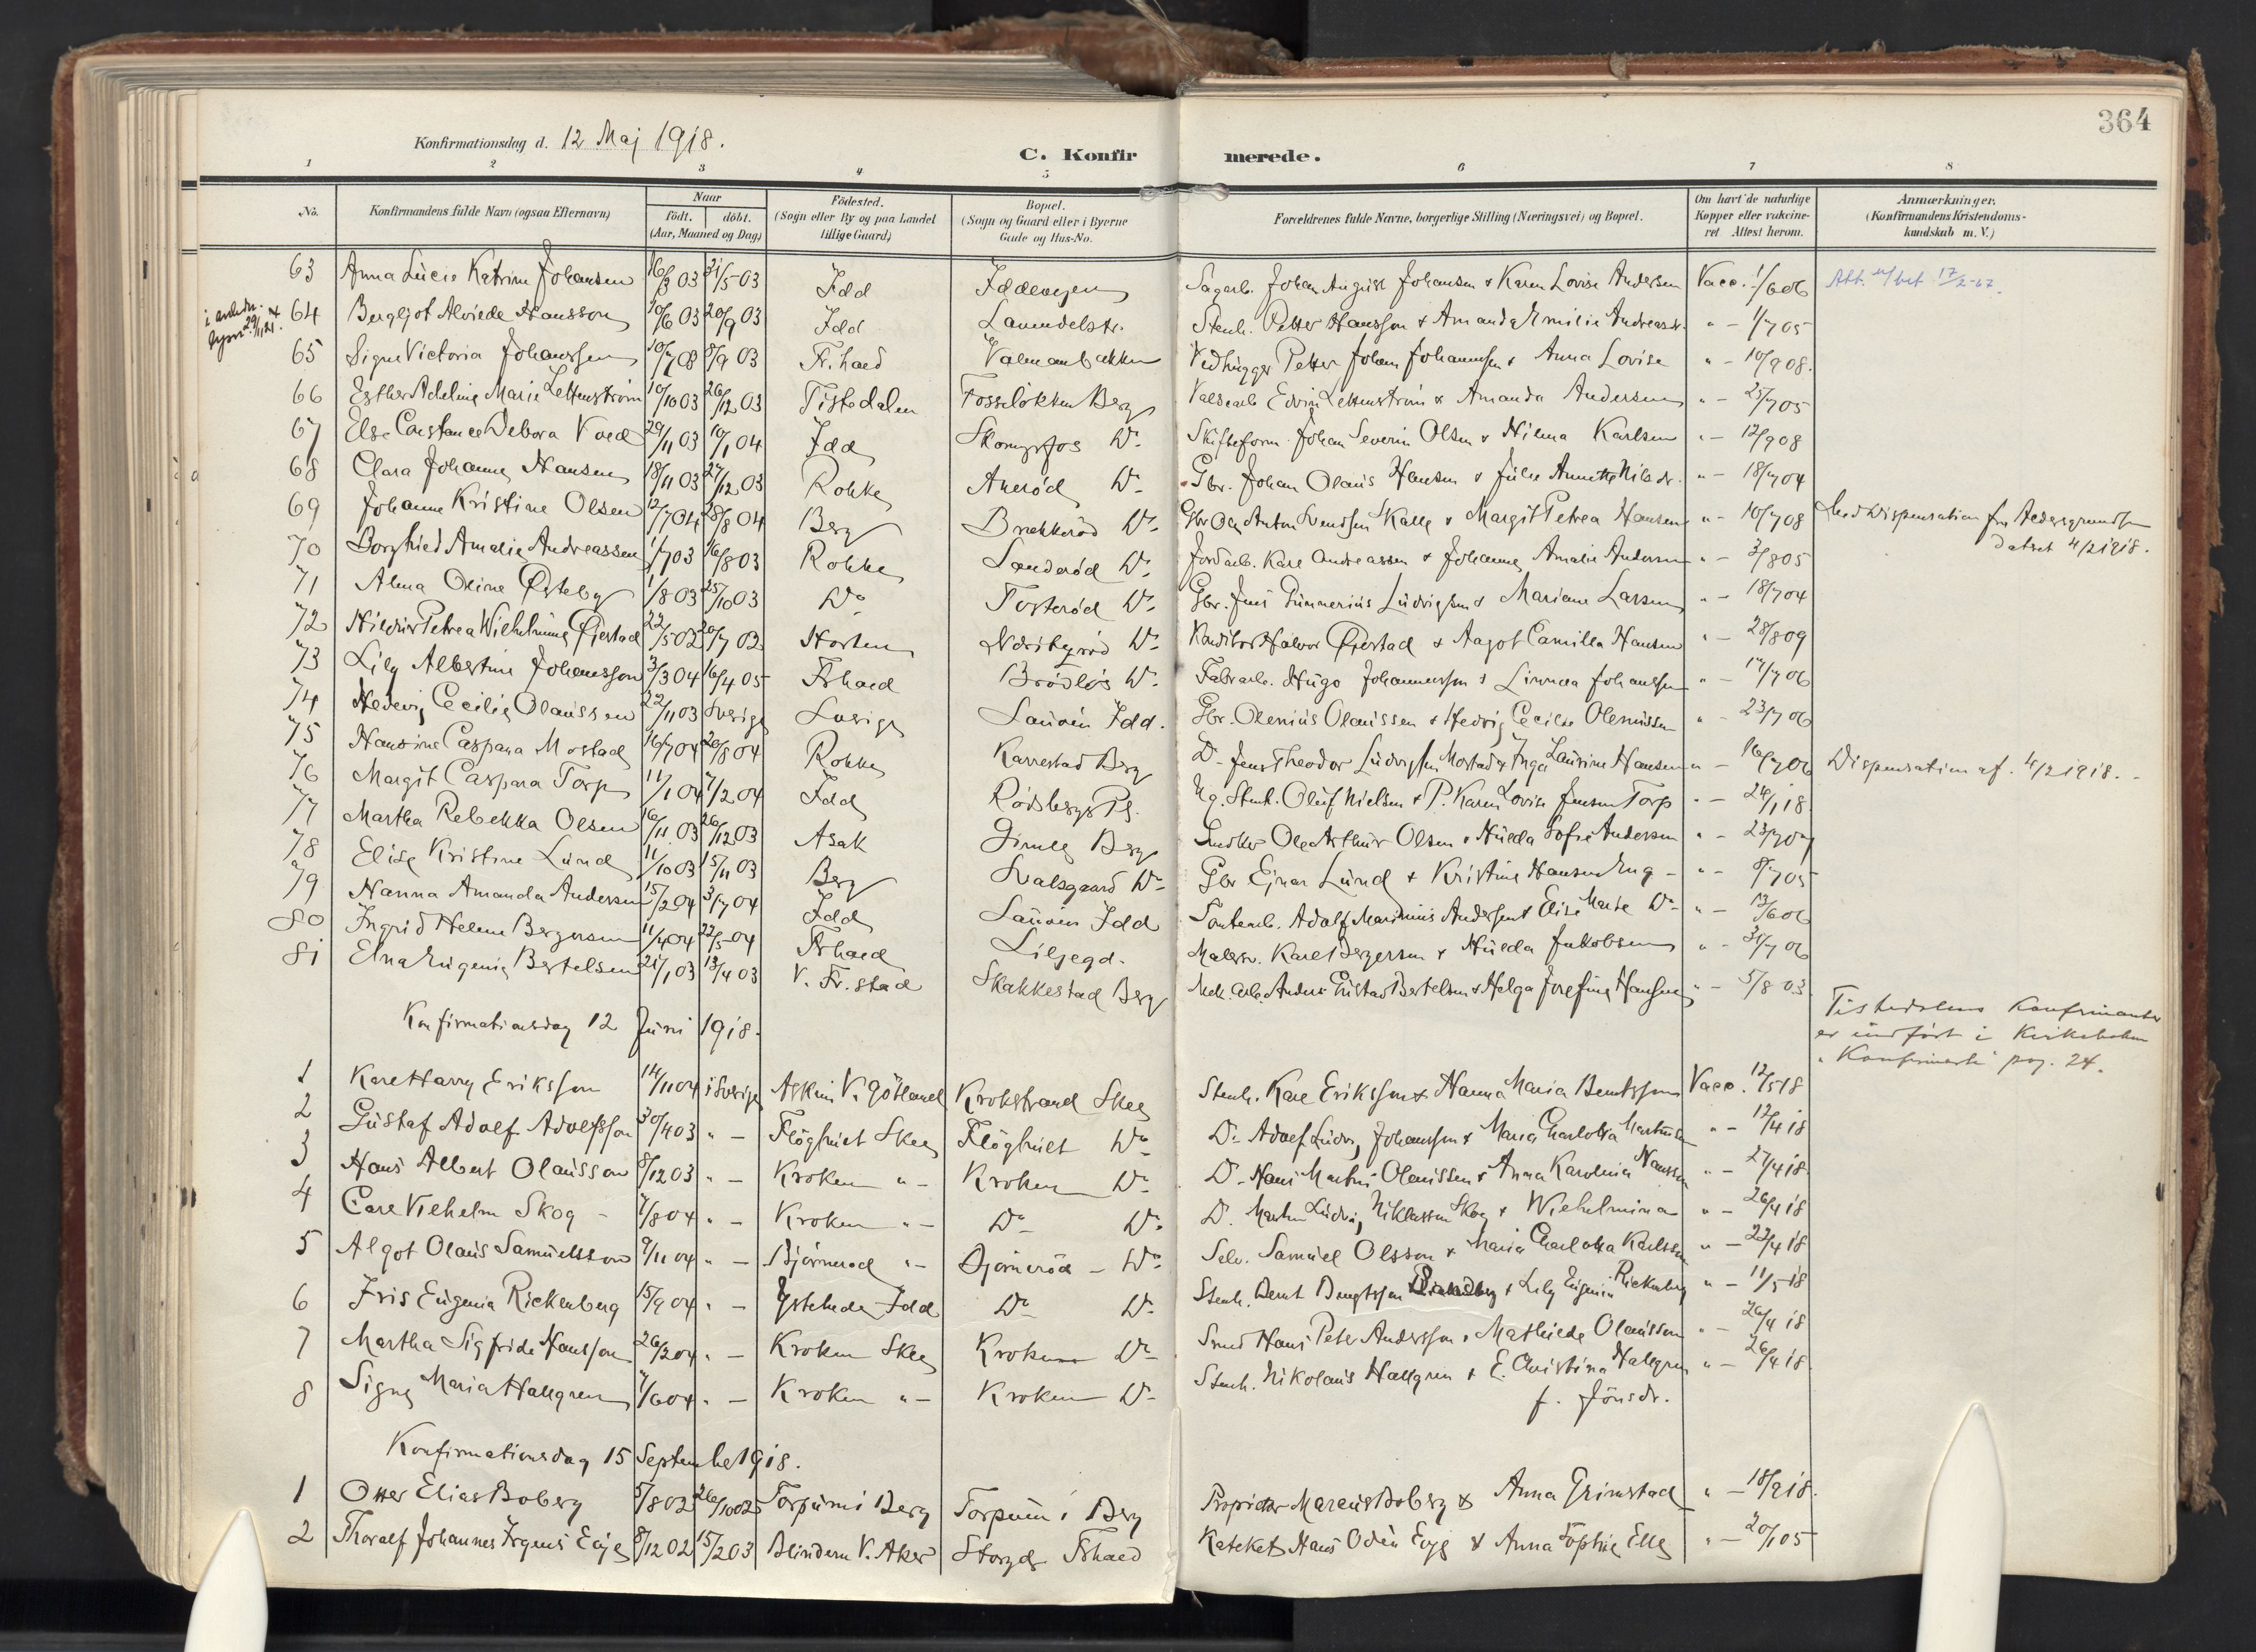 364
Konfirmationsdag d. 12 Maj 1918.
C. Konfirmerede.
1 2 3 4 5 6 7 8
No. Konfirmandens fulde Navn (ogsaa Efternavn) Naar født. døbt. (Aar, Maaned og Dag) Fødested. (Sogn eller By og paa Landet tillige Gaard) Bopæl. (Sogn og Gaard eller i Byerne Gade og Hus-No. Forældrenes fulde Navne, borgerlige Stilling (Næringsvei) og Bopæl. Om havt de naturlige Kopper eller vakcineret Attest herom. Anmærkninger. (Konfirmandens Kristendomskundskab m. V.)
63 Anna Lucie Katrine Johansen 31/5-03 Idd Iddeveien Sagarb. Johan August Johansen & Karen Lovise Andersen Vacc. 1/6 06 Att. 17/2-67.
64 Bergljot Alviede Hansson 10/6 03 20/9 03 Idd Lavendelstr. Stenh. Petter Hansson & Amanda Emilie Andreasdr. " - 1/7 05
65 Signe Victoria Johanssen 10/7 03 8/9 03 Fr.hald Valmanbakken Vedhugger Petter Johan Johannssen & Anna Lovise " - 10/9 08.
66 Esther Adeline Marie Lettenström 10/10 03 26/12 03 Tistedalen Fosseløkken Berg Valsearb. Edvin Lettenström & Amanda Andersen " - 25/7 05
67 Else Constance Debora Vold 29/11 03 10/1 04 Idd Skonnfos Do Skifteform. Johan Severin Olsen & Hilma Karlsen " - 12/9 08
68 Clara Johanne Hansen 18/11 03 27/12 03 Rokke Anerød Do Gbr. Johan Olaus Hansen & Julie Annette Nilsdr. " - 18/7 04
69 Johanne Kristine Olsen 12/7 04 28/8 04 Berg Brækkerød Do Gbr Ole Anton Svendsen Kalle & Margit Petrea Hansen " - 10/7 08 Med Dispensation fra Aldersgrændsen datert 4/2 1918.
70 Borghild Amalie Andreassen 1/7 03 16/8 03 Rokke Sanderød Do Jordarb. Karl Andreassen & Johanne Amalie Andersen " - 3/8 05
71 Alma Oline Østeby 1/8 03 25/10 03 Do Tosterød Do Gbr. Jens Gunnerius Ludvigsen & Mariane Larsen " - 18/7 04
72 Hildur Petrea Wilhelmine Øjestad 22/5 02 20/7 02 Horten Nordbyrød Do Konditor Halvor Øjestad & Aagot Camilla Hansen " - 28/8 09
73 Lily Albertine Johansson 3/3 04 16/4 05 Frhald Brødløs Do Fabrarb. Hugo Johannesson & Linnea Johansson " - 17/7 06
74 Hedevig Cecilie Olaussen 22/11 03 Sverige Sverige Sauøen Idd. Gbr. Olenius Olaussen & Hedvig Cecilie Oleniussen " - 23/7 06
75 Hansine Caspara Mostad 16/7 04 20/8 04 Rokke Karrestad Berg Do Jens Theodor Ludvigsen Mostad & Inga Laurine Hansen " - 16/7 06 Dispensation af. 4/2 1918.
76 Margit Caspara Torp 11/1 04 7/2 04 Idd Rødsberg Pl. Ug. Stenh. Oluf Nielsen & P. Karen Lovise Jensen Torp " - 24/1 18.
77 Martha Rebekka Olsen 16/11 03 26/12 03 Asak Gimle Berg Snedker Ole Arthur Olsen & Hulda Sofie Andersen " - 23/7 07
78 Elise Kristine Lund 11/10 03 15/11 03 Berg Svalsgaard Do Gbr Ejnar Lund & Kristine Hansen Eng - " - 8/7 05
79 Nanna Amanda Andersen 15/2 04 3/7 04 Idd Sauøen Idd Tomtearb. Adolf Marinius Andersen & Elise Marie Do " - 13/6 06
80 Ingrid Helene Bergersen 11/4 04 22/5 04 Frhald Liljegd. Malersv. Karl Bergersen & Hulda Jakobsen " - 31/7 06
81 Elna Eugenie Bertelsen 21/1 03 13/4 03 V. Fr.stad Skakkestad Berg Mek. Arb. Anders Gustav Bertelsen & Helga Josefine Hansen " - 5/8 03
Konfirmationsdag 12 Juni 1918.
Tistedalens Konfirmanter er indført i Kirkeboken "Konfirmerte" pag. 24.
1 Karl Harry Eriksson 14/11 04 i Sverige Askim V. Götland Krokstrand Skee Stenh. Karl Eriksson & Hanna Maria Berntsson Vacc. 12/5 18
2 Gustaf Adolf Adolfsson 30/4 03 " - Fløghult Skee Fløghult Do Do Adolf Ludv, Johansson & Maria Charlotta Martinsen " - 12/4 18
3 Hans Albert Olausson 8/12 03 " - Kroken " - Kroken Do Do Hans Martin Olaussen & Anna Karolina Hansson " - 27/4 18.
4 Carl Vilhelm Skog - 7/8 04 " - Kroken " - Do Do Do Martin Ludvig Niklassen Skog & Wilhelmina " - 26/4 18
5 Algot Olaus Samuelsson 9/11 04 " - Bjørnerød " - Bjørnerød - Do Selv. Samuel Olsson & Maria Charlotta Karlsson " - 22/4 18
6 Iris Eugenia Rickenberg 15/9 04 " - Ystehede Idd Do Do Stenh. Bernt Bengtsson & Lily Eugenia Rickenberg " - 11/5-18
7 Martha Sigfride Hansson 26/2 04 " - Kroken Skee Kroken Do Smed Hans Peter Andersson & Mathilde Olausson " - 26/4 18
8 Signe Maria Hallgren 7/6 04 " - Kroken " - Kroken Do Stenh. Nikolaus Hallgren & E. Christina Hallgren f. Jönsdr. " - 26/4 18.
Konfirmationsdag 15 September 1918.
1 Otter Elias Boberg 5/8 02 26/10 02 Torpum i Berg Torpum i Berg Proprietær Marcus Boberg & Anna Grimstad " - 18/9 18.
2 Thoralf Johannes Irgens Evje 8/12 02 15/2 03 Blindern V. Aker Storgd. Frhald Kateket Hans Odin Evje & Anna Sophie Elle " - 20/1 05